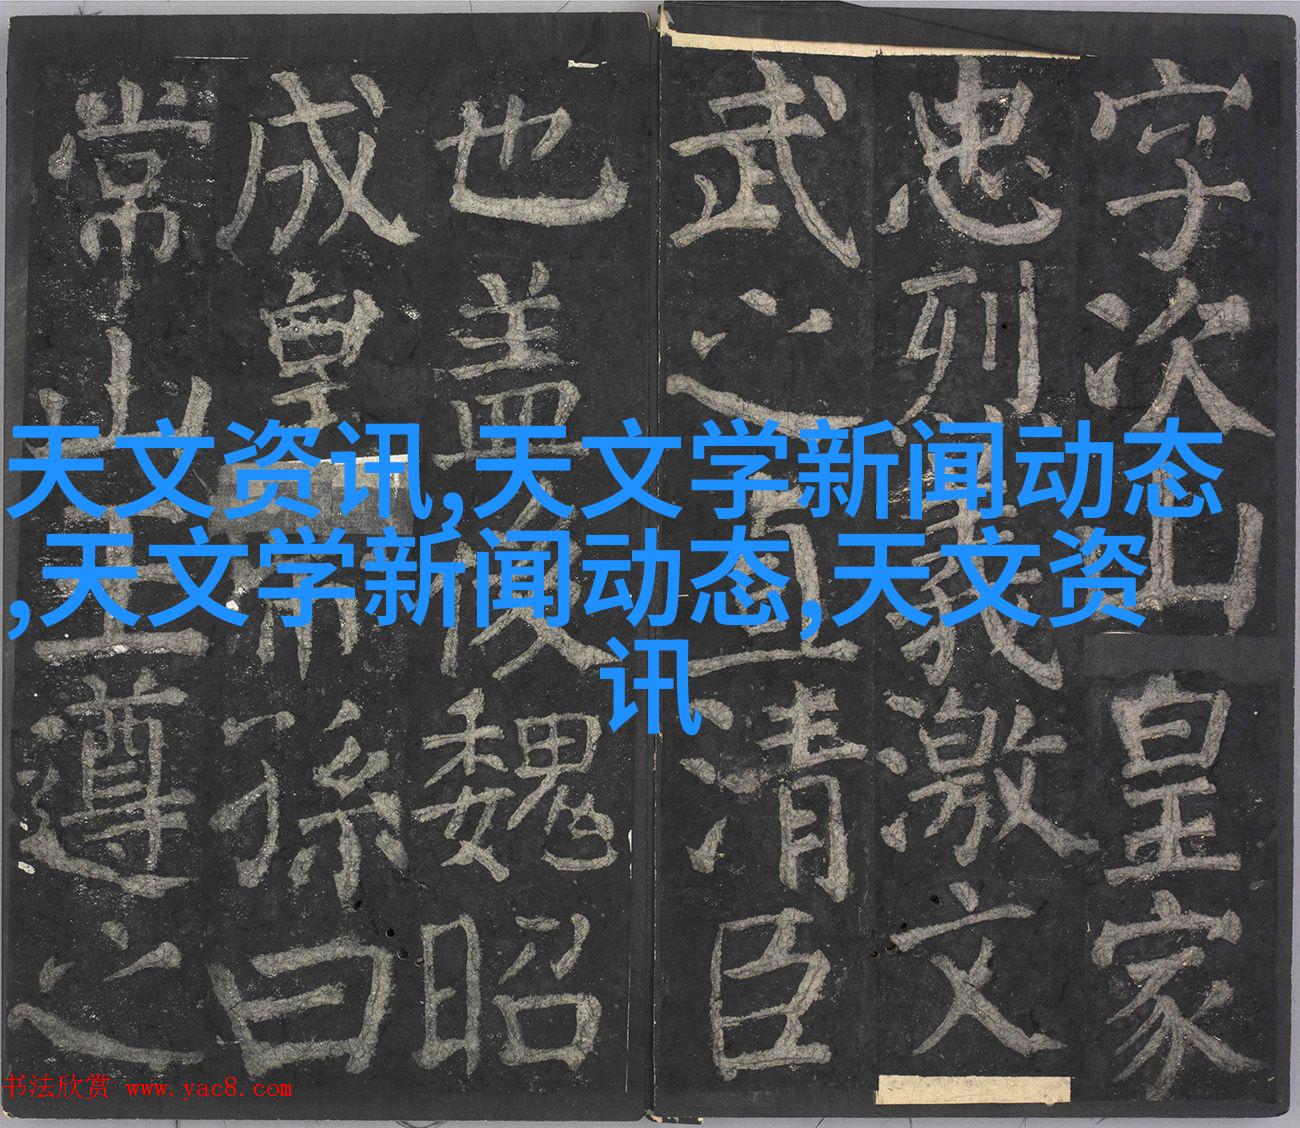 字次山皇家
忠烈義激文
武之直清臣
也盖後魏昭
成皇帝孫曰
常山王遵之
天文资讯,天文学新闻动态
,天文学新闻动态,天文资
讯
书法欣赏 www.yac8.com